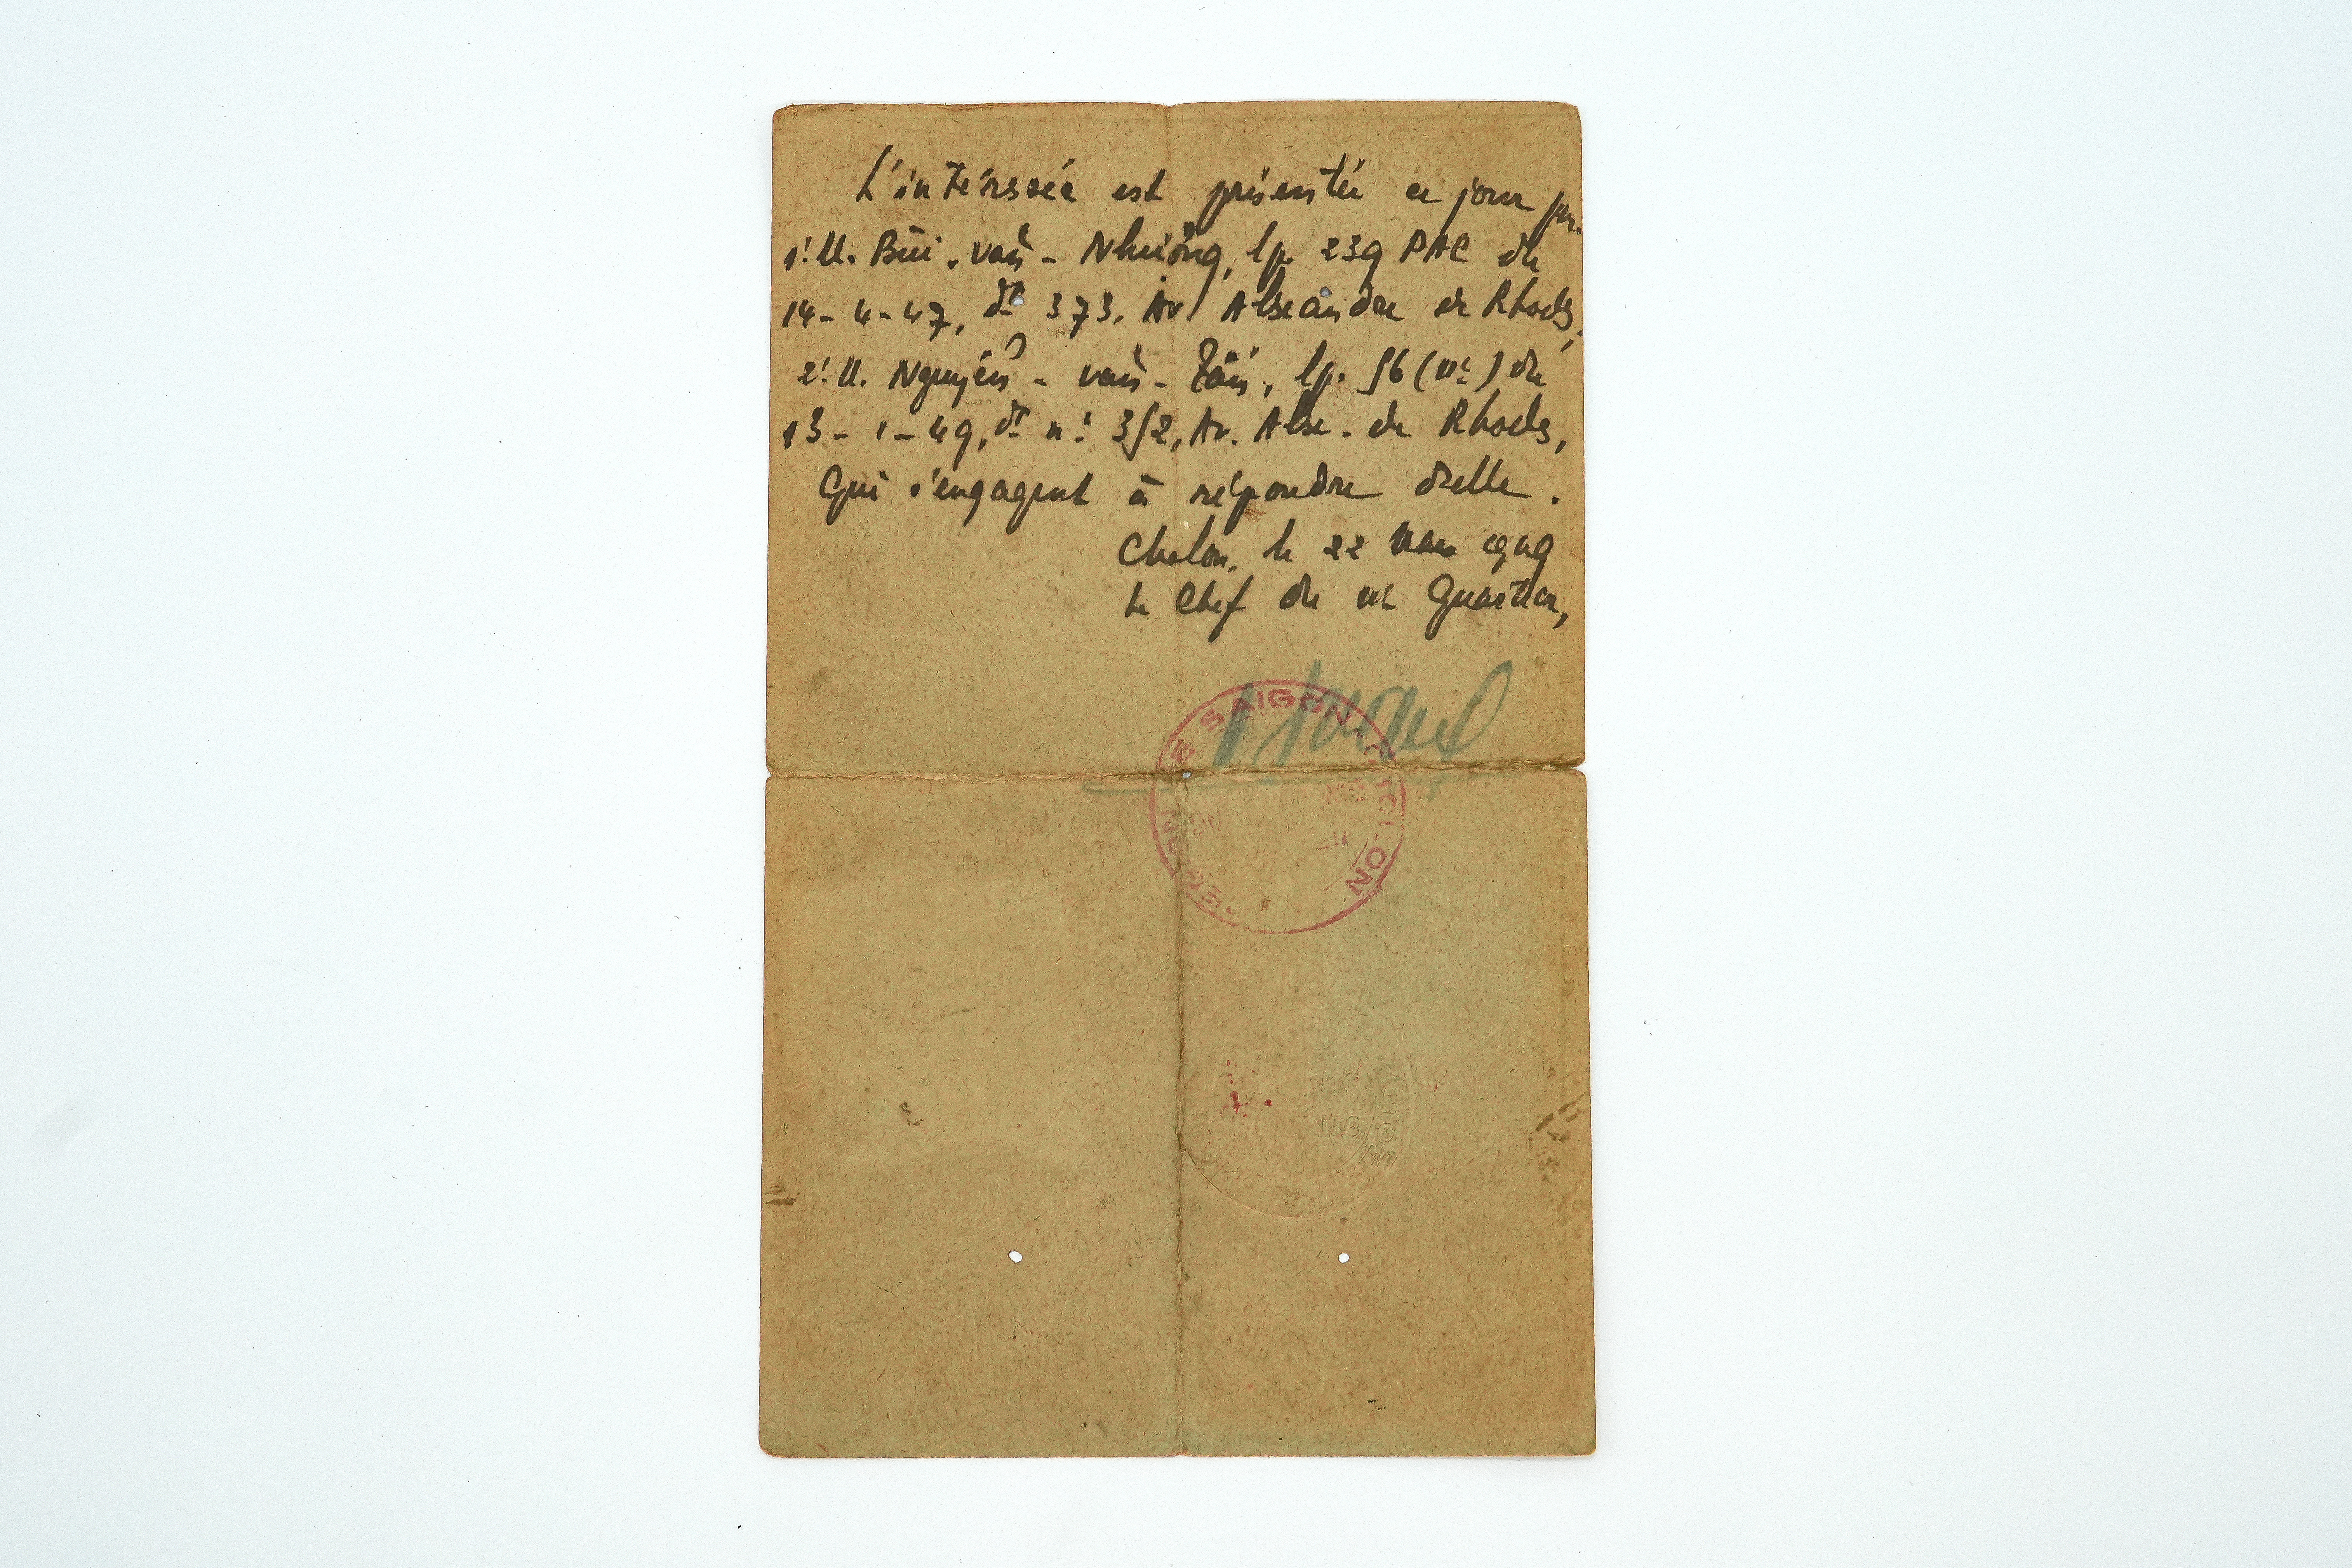 L'intéressée est présentée ce jour par
1! M. Bùi-văn-Nhường, lp. 239 PAC du
14-4-47, dt 373, Av. Alexandre de Rhodes,
2! M. Nguyễn-văn-Tấn, lp. 56 ( ) du
13-1-49, dt n! 352, Av. Alex. de Rhodes,
Qui s'engagent à répondre d'elle.
Cholon, le 22 Mars 1949
Le Chef du Quartier,
SAIGON